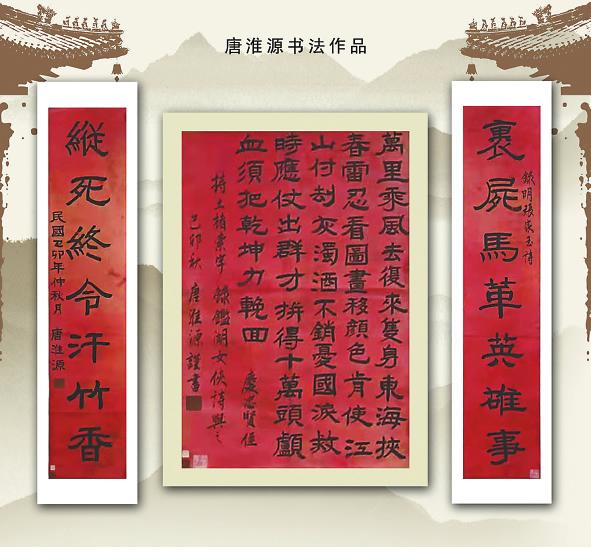 唐淮源书法作品
裹屍馬革英雄事
錄明張家玉詩
萬里乘風去復來隻身東海挾
春雷忍看圖畫移顏色肯使江
山付刼灰濁酒不銷憂國淚救
時應仗出群才拚得十萬頭顱
血須把乾坤力輓回
慶忠賢侄
索字 錄鑑湖女俠詩與之
己卯秋 唐淮源謹書
縱死終令汗竹香
民國己卯年仲秋月 唐淮源